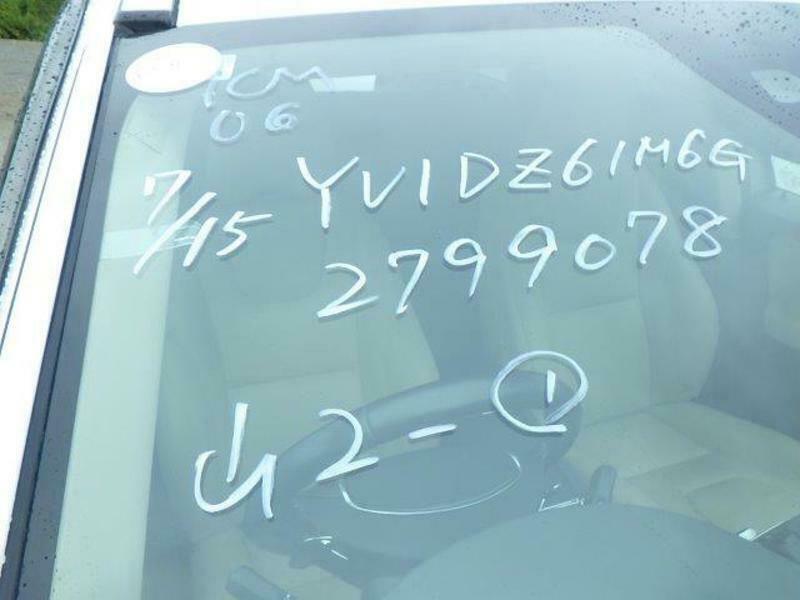 06
7/15 YV1DZ61M6G
2799078
山2-①